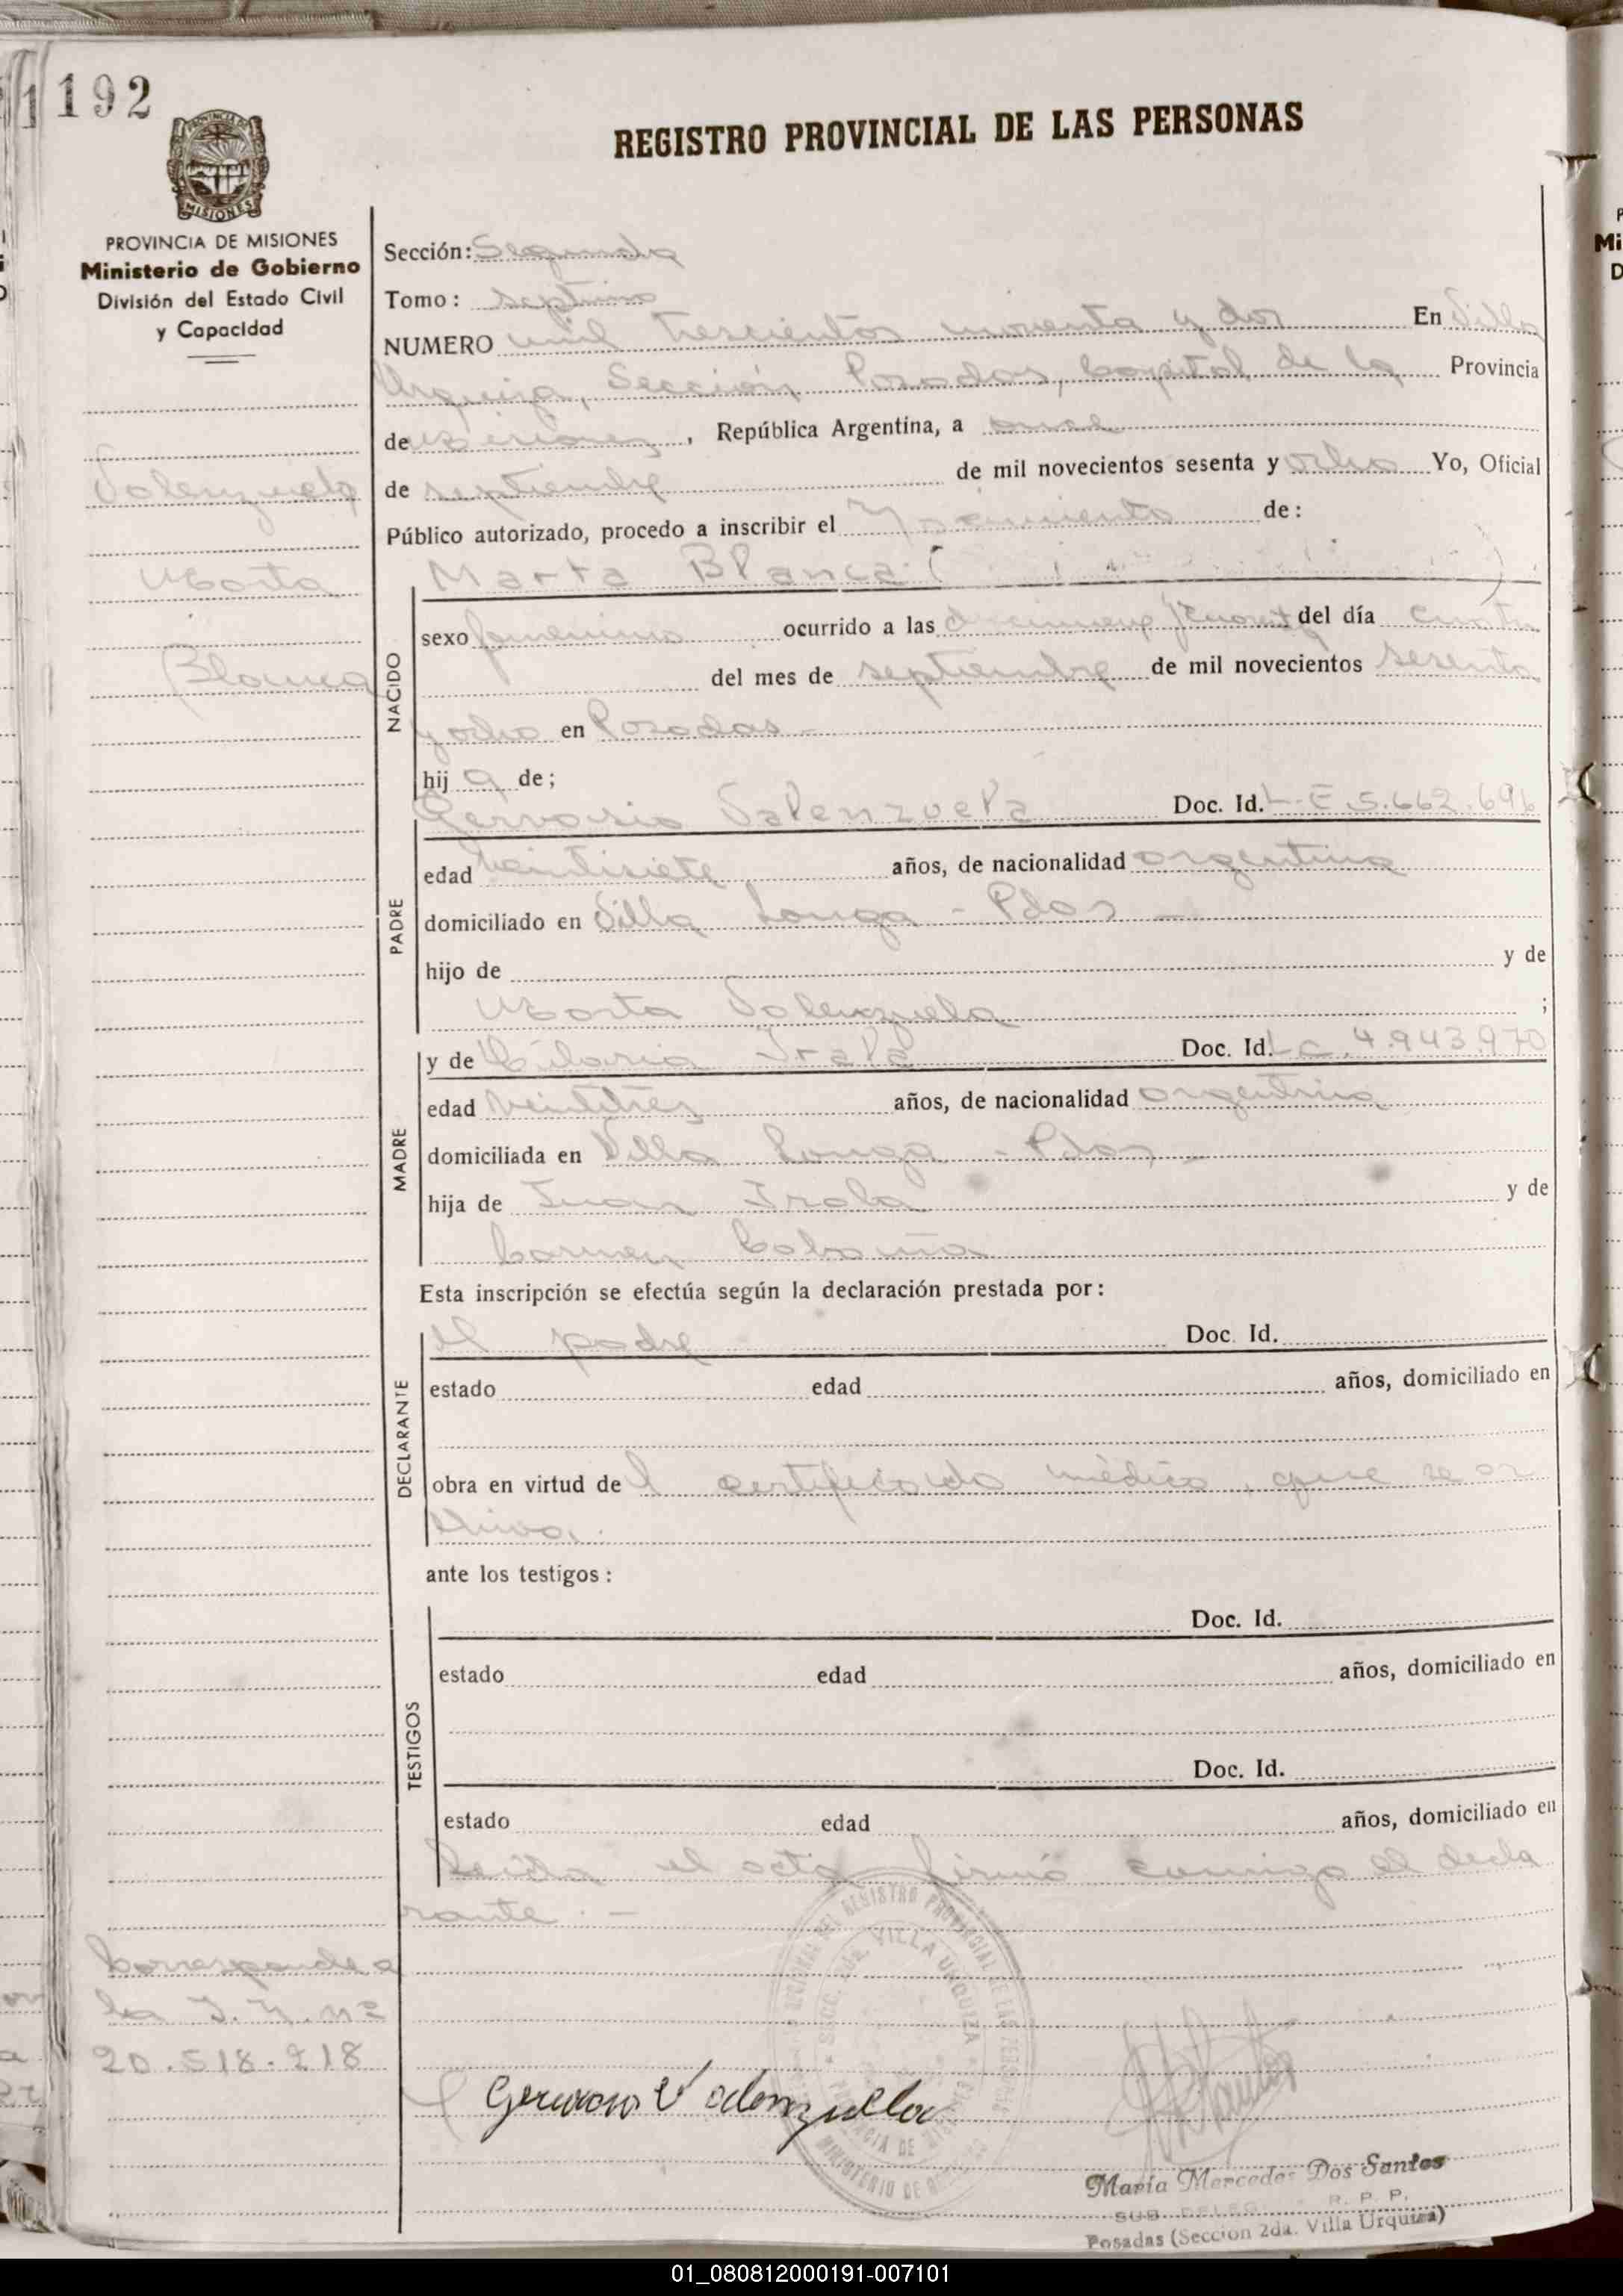 192
REGISTRO PROVINCIAL DE LAS PERSONAS
MISIONES
PROVINCIA DE MISIONES
Ministerio de Gobierno
División del Estado Civil
y Capacidad
Valenzuela
Marta
Blanca
Sección: Segunda
Tomo: septimo
NUMERO mil trescientos noventa y dos En Villa
Urquiza, Sección Posadas, Capital de la Provincia
de Misiones, República Argentina, a once
de septiembre de mil novecientos sesenta y ocho Yo, Oficial
Público autorizado, procedo a inscribir el Nacimiento de:
NACIDO
Marta Blanca
sexo femenino ocurrido a las del día cuatro
del mes de septiembre de mil novecientos sesenta
y ocho en Posadas
hija de;
PADRE
Gervasio Valenzuela Doc. Id. L.E 5.662.696
edad veintisiete años, de nacionalidad argentina
domiciliado en Villa Longa - Pdas -
hijo de y de
Marta Valenzuela ;
MADRE
y de Hilaria Irala Doc. Id. L.C. 4.943.970
edad veintitres años, de nacionalidad argentina
domiciliada en Villa Longa - Pdas -
hija de Juan Irala y de
Carmen
Esta inscripción se efectúa según la declaración prestada por:
DECLARANTE
el padre Doc. Id.
estado edad años, domiciliado en
obra en virtud del certificado médico, que se ar
chiva.
ante los testigos:
TESTIGOS
Doc. Id.
estado edad años, domiciliado en
Doc. Id.
estado edad años, domiciliado en
Leída el acta firmó conmigo el decla
rante. -
Corresponde a
la I. N. nº
20.518.218
VILLA URQUIZA
Gervasio Valenzuella
María Mercedes Dos Santos
SUB DELEG. R. P. P.
Posadas (Sección 2da. Villa Urquiza)
01_080812000191-007101